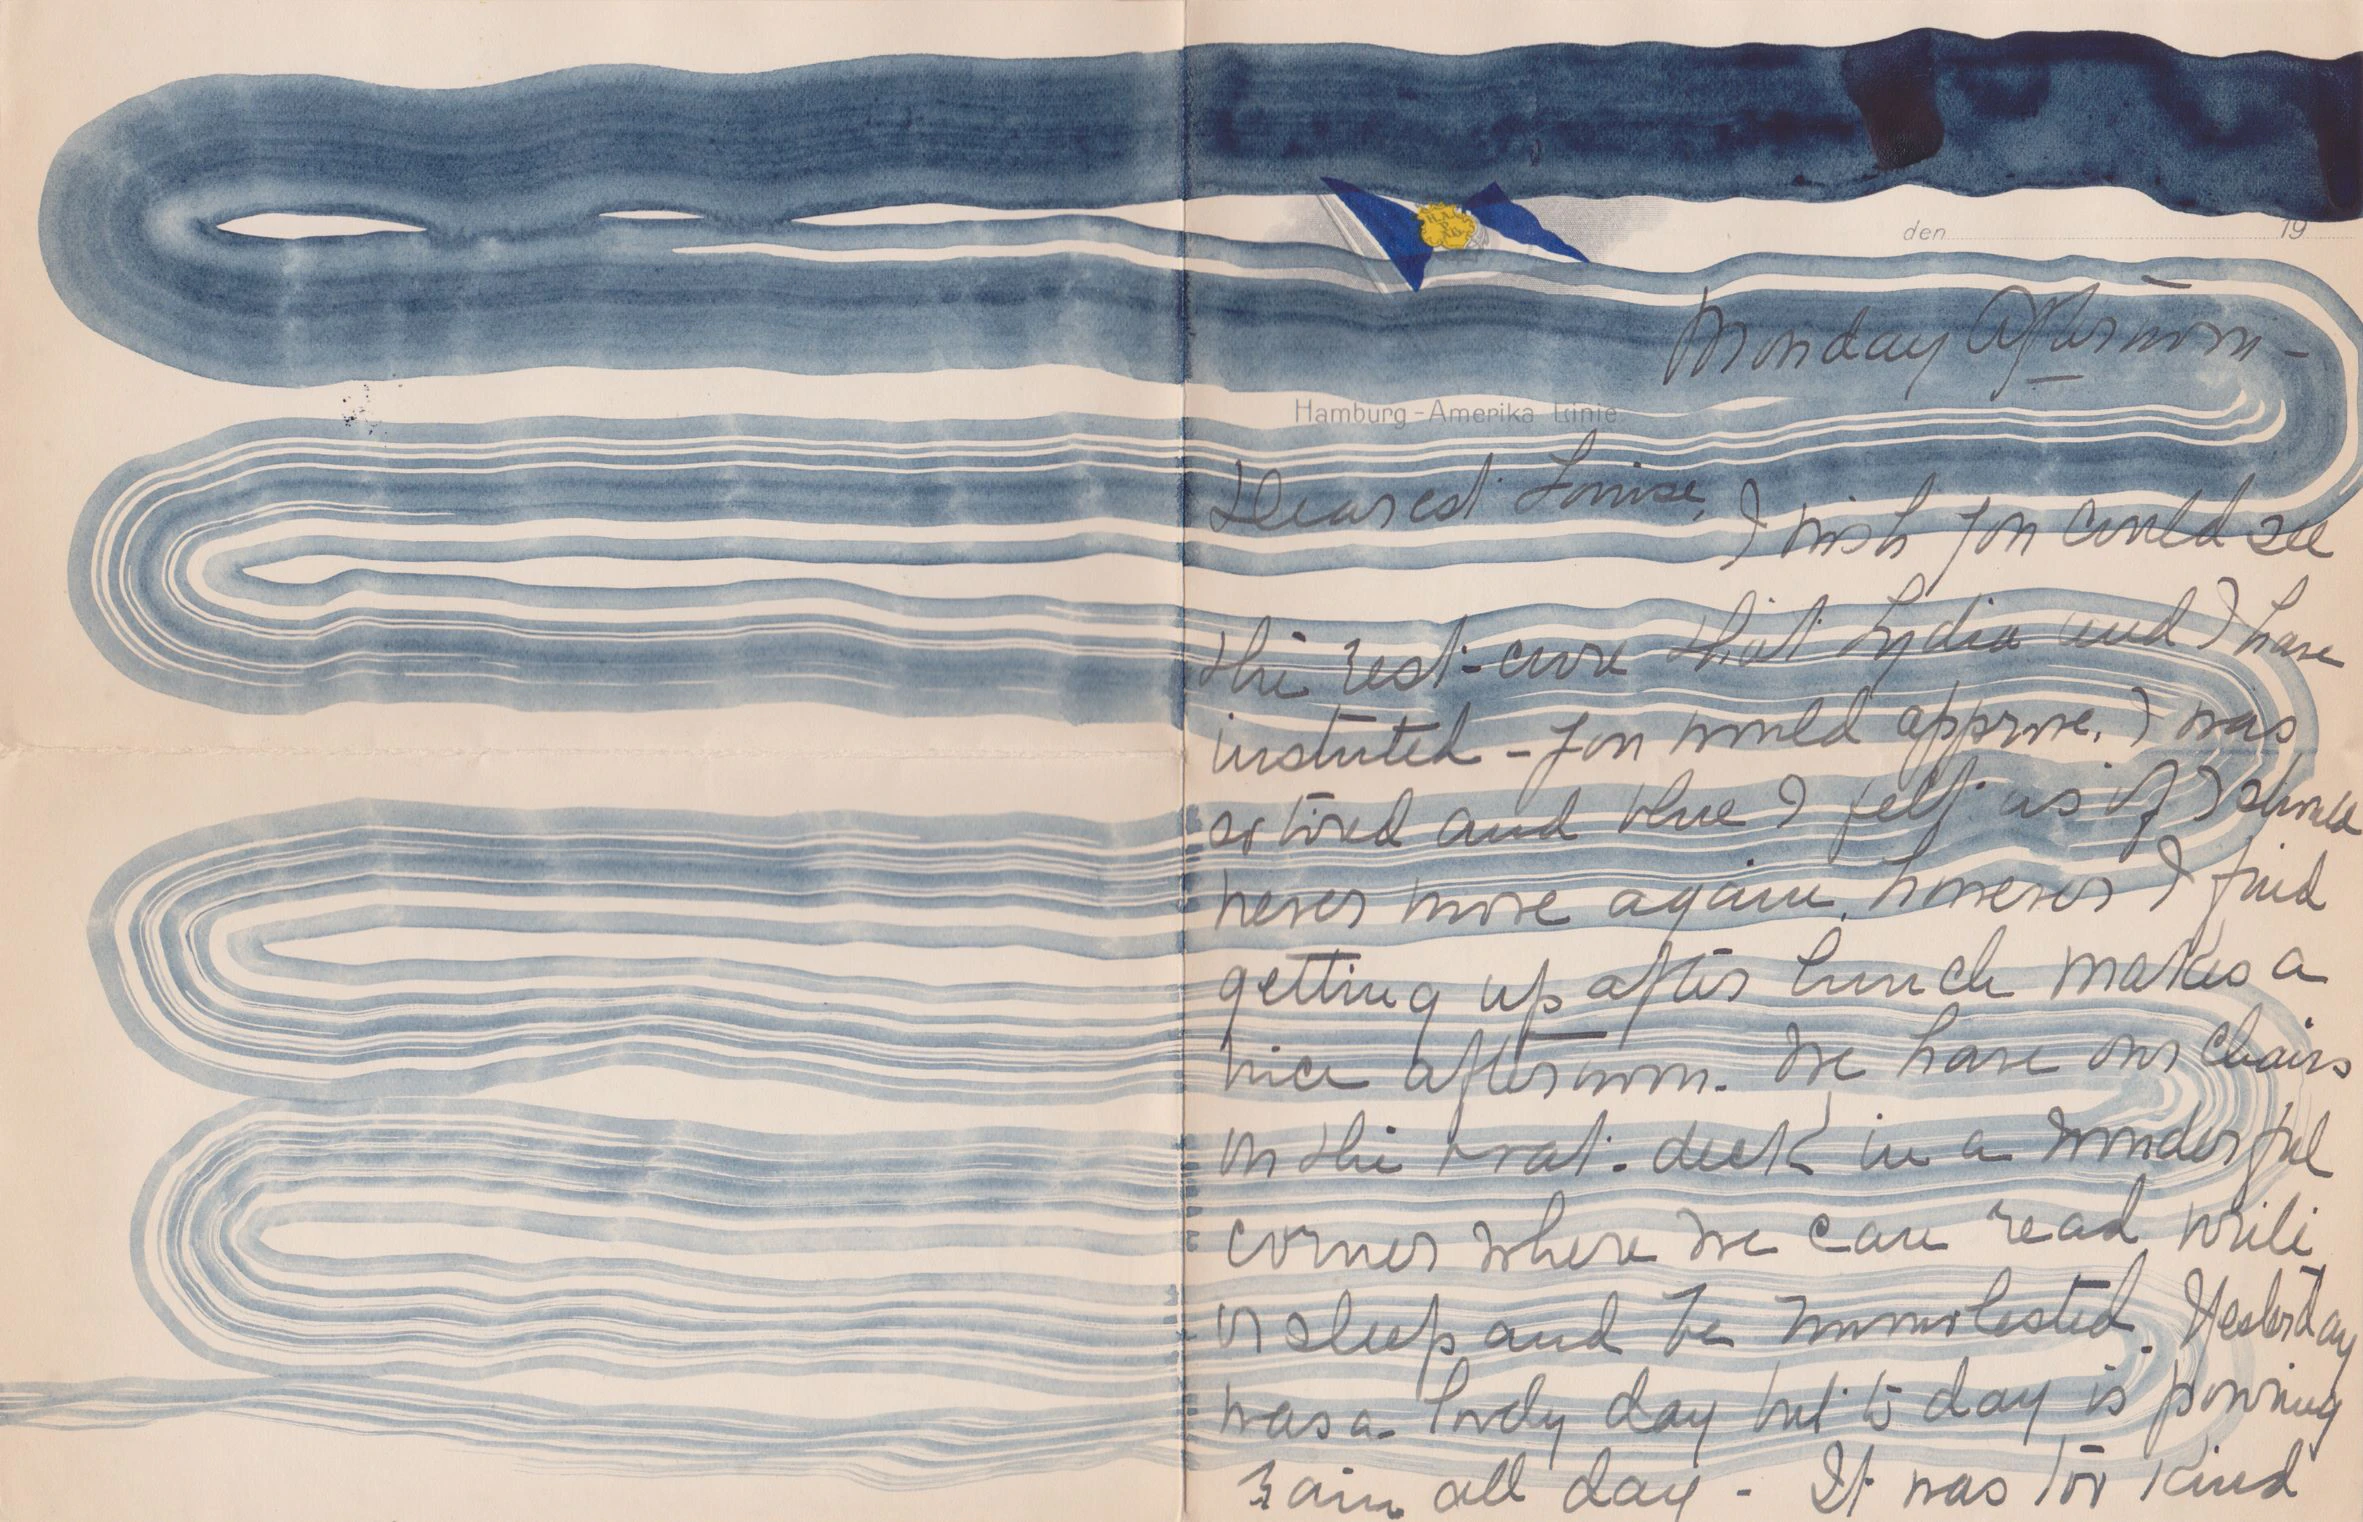 H.A.
P.
A.G.
den 19
Monday Afternoon -
Hamburg-Amerika Linie
Dearest Louise,
I wish you could see
the rest-cure that Lydia and I have
instuted - you would approve. I was
so tired and blue I felt as if I should
never move again. however I find
getting up after lunch makes a
nice afternoon. We have our chairs
on the boat-deck in a wonderful
corner where we can read write
or sleep and be unmolested. Yesterday
was a lovely day but to day is pouring
rain all day - It was too kind